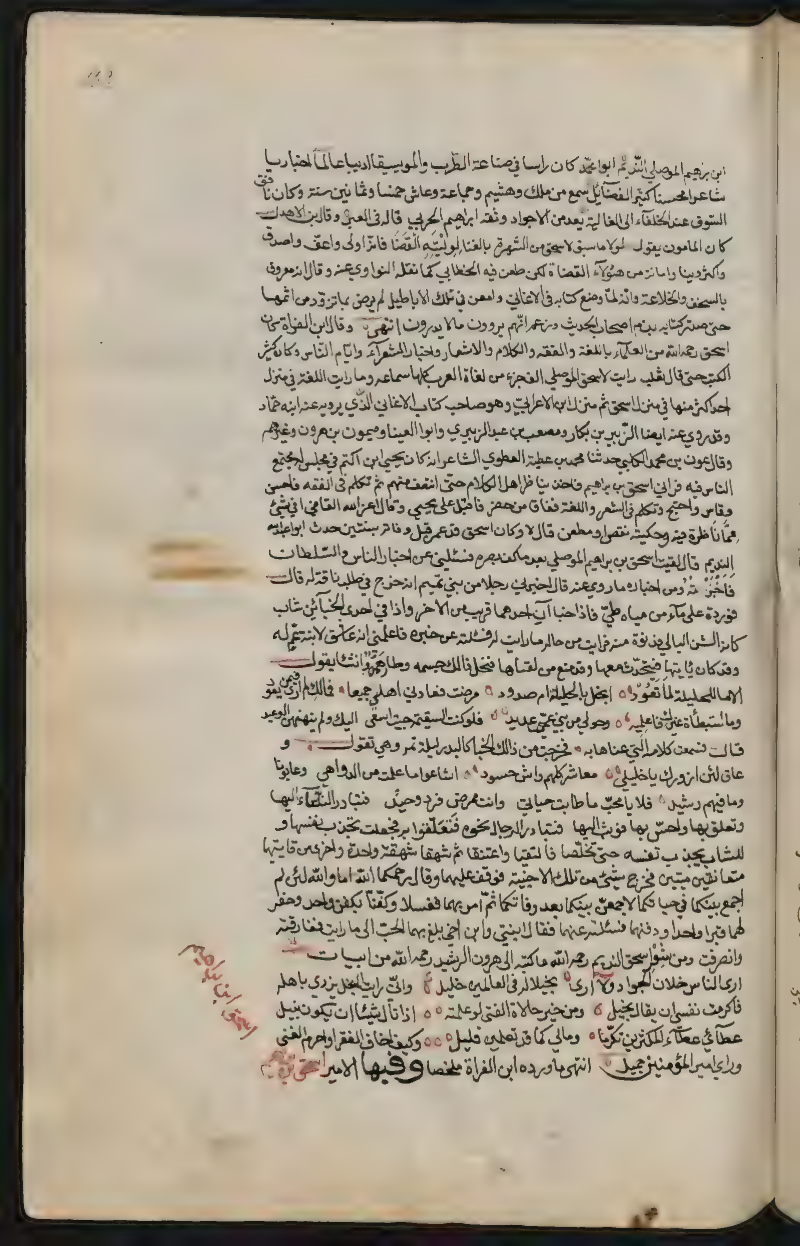 ابن برهيم الموصلي النديم ابو محمد كان راسا في صناعة الطرب والموسيقا اديبا عالما اخباريا
شاعرا محسنا كثير الفضايل سمع من ملك وهشيم وجماعة وعاش خمسا وثمانين سنة وكان نافق
السوق عند الخلفاء الى الغاية يعد من الاجواد وثقه ابراهيم الحربي قاله في العبر وقال ابن الاهدل
كان المامون يقول لولا ما سبق لاسحق من الشهرة بالغنا لوليته القضا فانه اولى واعف واصدق
واكثر دينا وامانة من هؤلاء القضاة لكن طعن فيه الخطابي كما نقله النواوي عنه وقال انه معروف
بالسخف والخلاعة وانه لما وضع كتابه في الاغاني وامعن في تلك الاباطيل لم يرض بما تزود من اثمها
حتى صدر كتابه بذم اصحاب الحديث وزعم انهم يروون ما لا يدرون انتهى وقال ابن الفراة كان
اسحق رحمه الله من العلماء باللغة والفقه والكلام والاشعار واخبار الشعراء وايام الناس وكان كثير
الكتب حتى قال ثعلب رايت لاسحق الموصلي الف جزء من لغاة العرب كلها سماعه وما رايت اللغة في منزل
احد اكثر منها في منزل اسحق ثم منزل ابن الاعرابي وهو صاحب كتاب الاغاني الذي يرويه عنه ابنه حماد
وقد روي عنه ايضا الزبير بن بكار ومصعب بن عبد الزبيري وابو العينا وميمون بن هرون وغيرهم
وقال عون بن محمد الكلبي حدثنا محمد بن عطية العطوي الشاعر انه كان يحيى ابن اكثم في مجلس يجتمع
الناس فيه فراني اسحق بن براهيم فاخذ يناظر اهل الكلام حتى انتصف منهم ثم تكلم في الفقه فاحسن
وقاس واحتج وتكلم في الشعر واللغة ففاق من حضر فاقبل على يحيى وقال اعز الله القاضي افي شئ
مما ناظرة فيه وحكيته نقص او مطعن قال لا وكان اسحق قد عمي قبل وفاته بسنتين حدث ابو عبد الله
النديم قال لقيت اسحق بن براهيم الموصلي بعد ما كف بصره فسئلني عن اخبار الناس والسلطان
فاخبرته ومن اخباره ما روي عنه قال اخبرني رجل من بني تميم انه خرج في طلب ناقة له قال
فوردة على ماء من مياه طيء فاذا خبا آن احدهما قريب من الاخر واذا في احدى الخبائين شاب
كانه الشن البالي فدنوة منه فرايت من حاله ما رايت فرق له عن خبره فاعلمني انه عاشق لابنة عم له
وقد كان ياتيها فيتحدث معها وقد منع من لقاها فنحل لذلك جسمه وطار همه وانشا يقول
الا ما للحبيلة لا تعود ابخل بالحبيلة ام صدود مرضت فعادني اهلي جميعا فمالك لا ترى فيمن يعود
وما استبطاة غيرك فاعليه وحولي من بني عمي عديد فلو كنت السقيم جيت اسعى اليك ولم ينهنهني الوعيد
قالت فسمعت كلامه التي عناها به فخرجت من ذلك الخبا كالبدر ليلة تم وهي تقول و
عاق لئن ازورك يا خليلي معاشر كلهم واش حسود اشاعوا ما علمت من الدواهي وعابونا
وما فيهم رشيد فلا يا حب ما طابت حياتي وانت ممرض فرد وحيد فتبادر النساء اليها
وتعلقن بها واحس بها فوثب اليها فتبادر الرجال نحوه فتعلقوا به فجعلت تجذب نفسها و
الشاب يجذب نفسه حتى تخلصا فالتقيا واعتنقا ثم شهقا شهقة واحدة وخرا من قامتيها
متعانقين ميتين فخرج شيخ من تلك الاخبية فوقف عليهما وقال رحمكما الله اما والله لئن لم
اجمع بينكما في حياتكما لاجمعن بينكما بعد وفاتكما ثم امر بهما فغسلا وكفنا بكفن واحد وحفر
لهما قبرا واحدا ودفنهما فسئلته عنهما فقال ابنتي وابن اخي بلغ بهما الحب الى ما رايت ففارقته
وانصرفت ومن شعر اسحق النديم رحمه الله ما كتبه الى هرون الرشيد رحمه الله من ابيات
ارى الناس خلان الجواد ولا ارى بخيلا له في العالمين خليل واني رايت البخل يزري باهله
فاكرمت نفسي ان يقال بخيل ومن خير حالاة الفتى لو علمته اذا نال شيئا ان يكون ينيل
عطائي عطاء المكثرين تكرما ومالي كما قد تعلمين قليل وكيف اخاف الفقر او احرم الغنى
وراي امير المؤمنين جميل انتهى ما ورده ابن الفراة ملخصا وفيها الامير اسحق بن ابراهيم
اسحق ابن ابراهيم